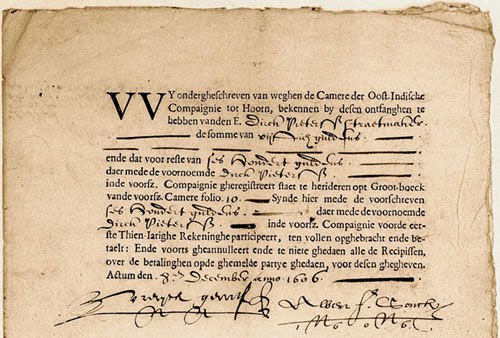 VVY ondergheschreven van weghen de Camere der Oost-Indische
Compaignie tot Hoorn, bekennen by desen ontfanghen te
hebben vanden E. Dirck Pieters Straetmaker
de somme van vijftich guldens
ende dat voor reste van ses hondert guldens
daer mede de voornoemde Dirck Pieters
inde voorsz. Compaignie gheregistreert staet te herideren opt Groot-boeck
vande voorsz. Camere folio. 10. Synde hier mede de voorschreven
ses hondert guldens daer mede de voornoemde
Dirck Pieters inde voorsz. Compaignie voorde eer-
ste Thien-Iarighe Rekeninghe participeert, ten vollen opghebracht ende be-
taelt: Ende voorts gheannulleert ende te niete ghedaen alle de Recipissen,
over de betalinghen opde ghemelde partye ghedaen, voor desen ghegheven.
Actum den. December anno. 1606.